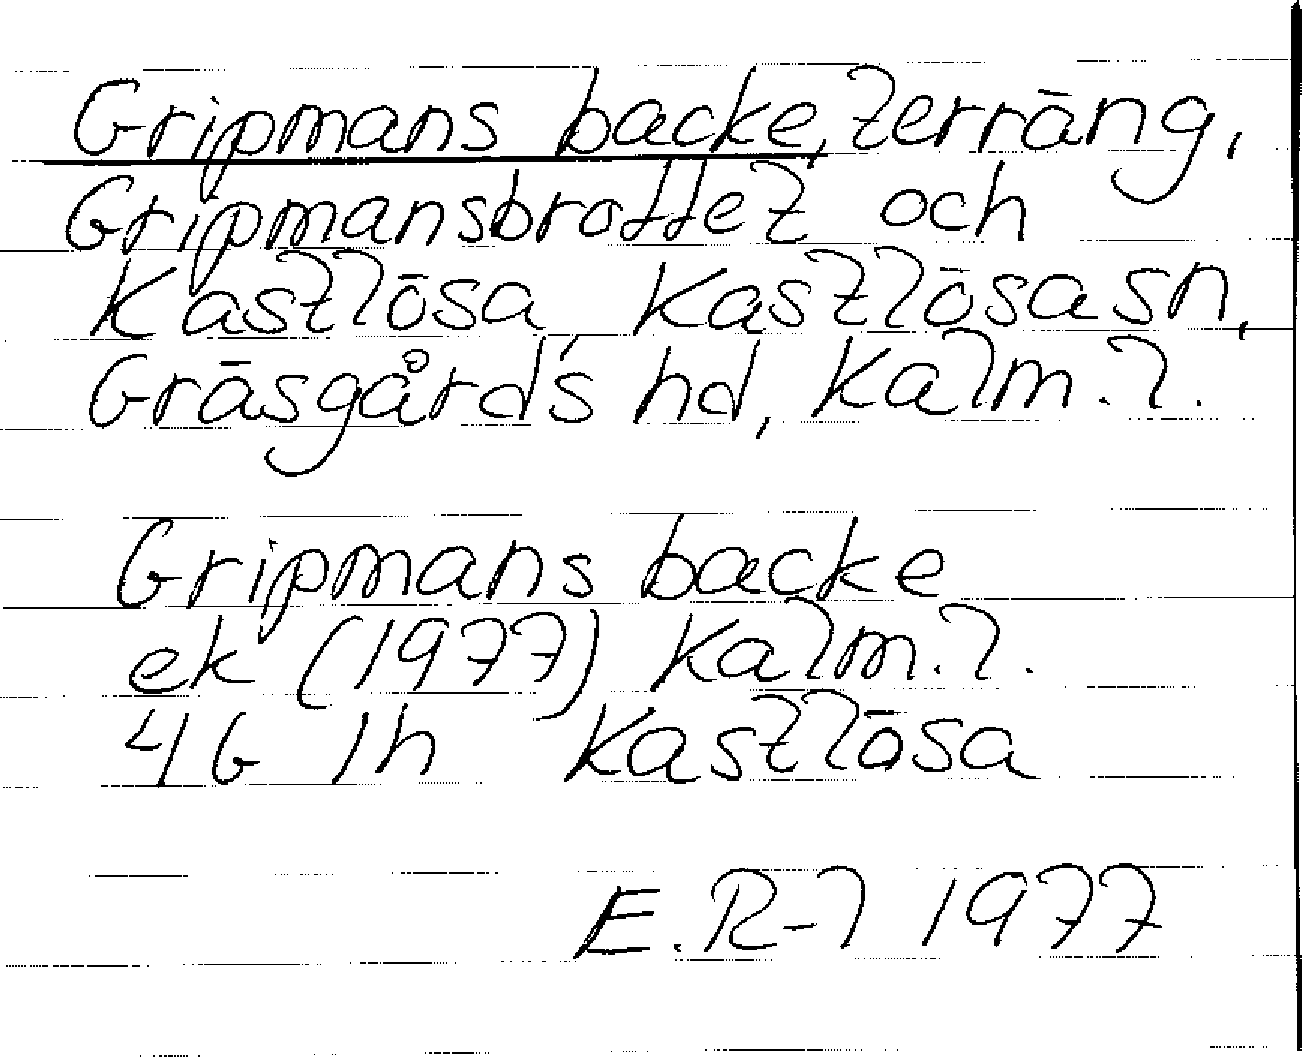 Gripmans backe, terräng,
Gripmansbrottet och
Kastlösa, Kastlösa sn,
Gräsgårds hd, Kalm. l.
Gripmans backe
ek (1977) Kalm. l.
4G 1h Kastlösa
E. R-l 1977